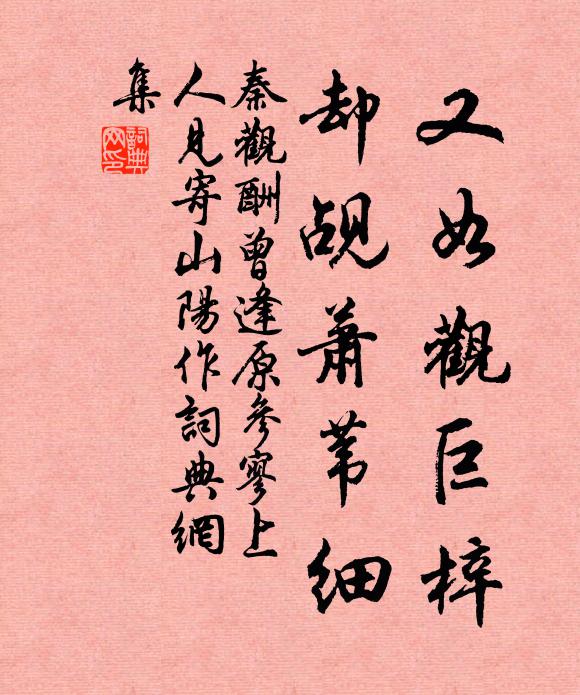 又如觀巨梓
却覘蕭苇細
秦觀酬曾逢原參寥上
人見寄山陽作詞典網
集
詞典
网印